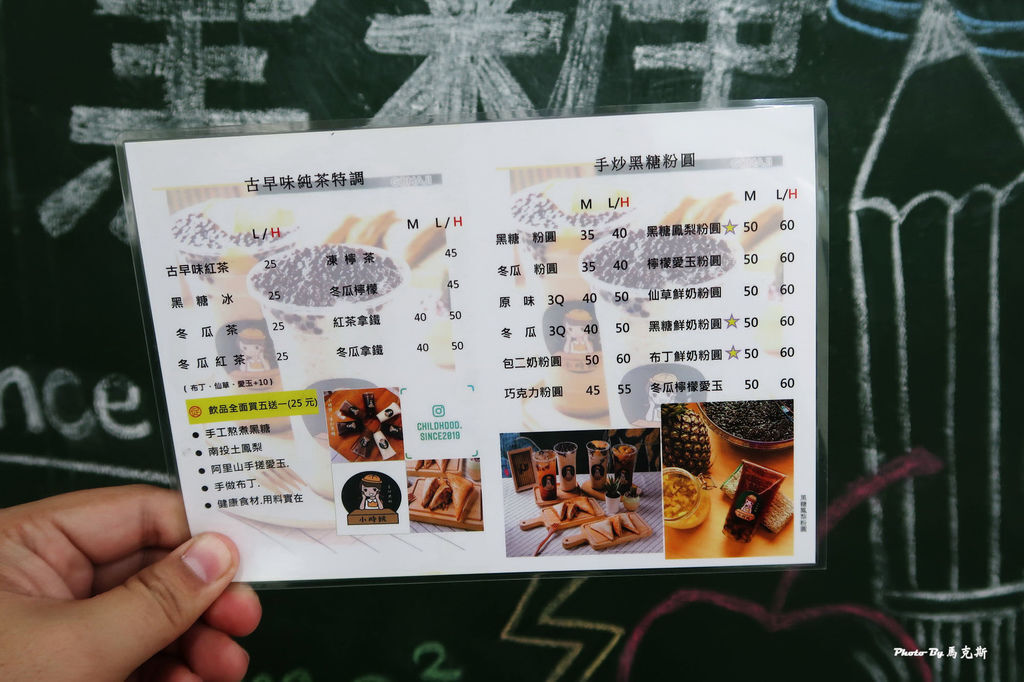 古早味純茶特調
L/H M L/H
古早味紅茶 25 凍檸茶 45
黑糖冰 25 冬瓜檸檬 45
冬瓜茶 25 紅茶拿鐵 40 50
冬瓜紅茶 25 冬瓜拿鐵 40 50
(布丁·仙草·愛玉+10)
飲品全面買五送一(25元)
● 手工熬煮黑糖
● 南投土鳳梨
● 阿里山手搓愛玉.
● 手做布丁.
● 健康食材,用料實在
CHILDHOOD.
SINCE2019
小時候
手炒黑糖粉圓
M L/H M L/H
黑糖 粉圓 35 40 黑糖鳳梨粉圓 50 60
冬瓜 粉圓 35 40 檸檬愛玉粉圓 50 60
原味 3Q 40 50 仙草鮮奶粉圓 50 60
冬瓜 3Q 40 50 黑糖鮮奶粉圓 50 60
包二奶粉圓 50 60 布丁鮮奶粉圓 50 60
巧克力粉圓 45 55 冬瓜檸檬愛玉 50 60
黑糖鳳梨粉圓
nce
2
Photo By 馬克斯